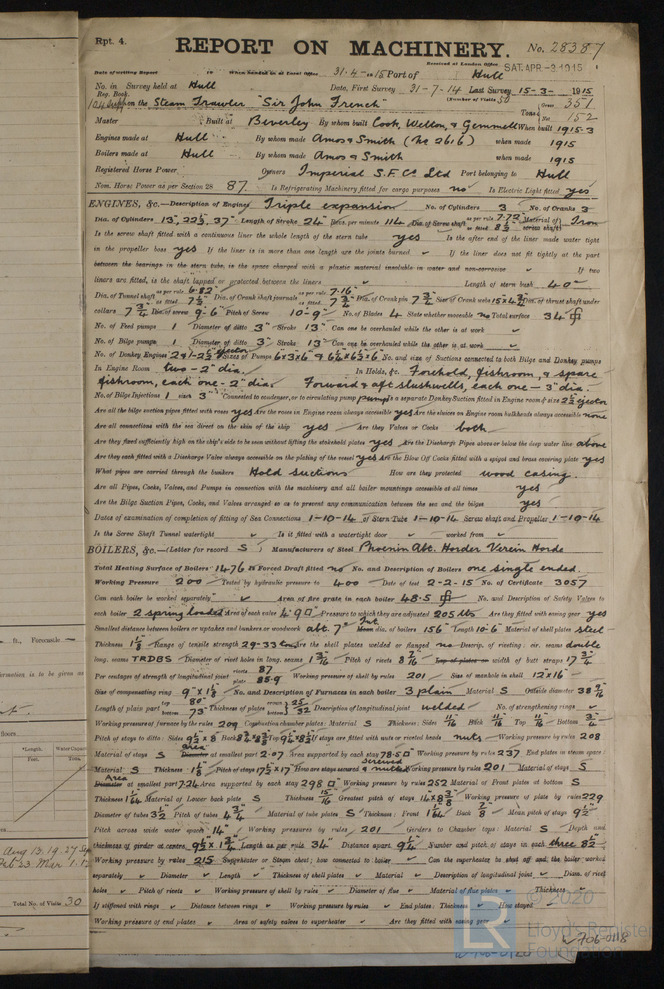 Rpt. 4.
REPORT ON MACHINERY. No. 28387
Received at London Office SAT. APR -3 1915
Date of writing Report 19 When handed in at Local Office 31-4-1915 Port of Hull
No. in Survey held at Hull Date, First Survey 31-7-14 Last Survey 15-3- 1915
Reg. Book. (Number of Visits 30
on the Steam Trawler "Sir John French" Tons Gross 351
Net 152
Master Built at Beverley By whom built Cook, Welton, & Gemmell When built 1915-3
Engines made at Hull By whom made Amos & Smith (No 2616) when made 1915
Boilers made at Hull By whom made Amos & Smith when made 1915
Registered Horse Power Owners Imperial S.F. Co Ltd Port belonging to Hull
Nom. Horse Power as per Section 28 87. Is Refrigerating Machinery fitted for cargo purposes no Is Electric Light fitted yes
ENGINES, &c.—Description of Engines Triple expansion No. of Cylinders 3 No. of Cranks 3
Dia. of Cylinders 13", 22½", 37" Length of Stroke 24" Revs. per minute 114 Dia. of Screw shaft as per rule 7.72 as fitted 8½ Material of screw shaft Iron
Is the screw shaft fitted with a continuous liner the whole length of the stern tube yes Is the after end of the liner made water tight
in the propeller boss yes If the liner is in more than one length are the joints burned If the liner does not fit tightly at the part
between the bearings in the stern tube, is the space charged with a plastic material insoluble in water and non-corrosive If two
liners are fitted, is the shaft lapped or protected between the liners Length of stern bush 40"
Dia. of Tunnel shaft as per rule 6.82 as fitted 7½ Dia. of Crank shaft journals as per rule 7.16 as fitted 7¾ Dia. of Crank pin 7¾ Size of Crank webs 15x4¾ Dia. of thrust shaft under
collars 7¾ Dia. of screw 9-6 Pitch of Screw 10-9 No. of Blades 4 State whether moveable no Total surface 34
No. of Feed pumps 1 Diameter of ditto 3" Stroke 13" Can one be overhauled while the other is at work
No. of Bilge pumps 1 Diameter of ditto 3" Stroke 13" Can one be overhauled while the other is at work
No. of Donkey Engines 2 & 1-2½" ejector Sizes of Pumps 6x3x6 & 6½x6½x6 No. and size of Suctions connected to both Bilge and Donkey pumps
In Engine Room two - 2" dia. In Holds, &c. Forehold, fishroom, & spare
fishroom, each one - 2" dia. Forward & aft slushwells, each one - 3" dia.
No. of Bilge Injections 1 sizes 3" Connected to condenser, or to circulating pump pump Is a separate Donkey Suction fitted in Engine room & size 2½ ejector
Are all the bilge suction pipes fitted with roses yes Are the roses in Engine room always accessible yes Are the sluices on Engine room bulkheads always accessible none
Are all connections with the sea direct on the skin of the ship yes Are they Valves or Cocks both
Are they fixed sufficiently high on the ship's side to be seen without lifting the stokehold plates yes Are the Discharge Pipes above or below the deep water line above
Are they each fitted with a Discharge Valve always accessible on the plating of the vessel yes Are the Blow Off Cocks fitted with a spigot and brass covering plate yes
What pipes are carried through the bunkers Hold suctions How are they protected wood casing.
Are all Pipes, Cocks, Valves, and Pumps in connection with the machinery and all boiler mountings accessible at all times yes
Are the Bilge Suction Pipes, Cocks, and Valves arranged so as to prevent any communication between the sea and the bilges yes
Dates of examination of completion of fitting of Sea Connections 1-10-14 of Stern Tube 1-10-14 Screw shaft and Propeller 1-10-14
Is the Screw Shaft Tunnel watertight Is it fitted with a watertight door worked from
BOILERS, &c.—(Letter for record S) Manufacturers of Steel Phoenix Abt. Horder Verein Horde
Total Heating Surface of Boilers 1476 Is Forced Draft fitted no No. and Description of Boilers one single ended.
Working Pressure 200 Tested by hydraulic pressure to 400 Date of test 2-2-15 No. of Certificate 3057
Can each boiler be worked separately Area of fire grate in each boiler 48.5 No. and Description of Safety Valves to
each boiler 2 spring loaded Area of each valve 4.9 Pressure to which they are adjusted 205 lbs Are they fitted with easing gear yes
Smallest distance between boilers or uptakes and bunkers or woodwork abt. 7" Int dia. of boilers 156" Length 10-6 Material of shell plates steel
Thickness 1⅛ Range of tensile strength 29-33 Are the shell plates welded or flanged no Descrip. of riveting: cir. seams double
long. seams TRDBS Diameter of rivet holes in long. seams 1 3/16 Pitch of rivets 8 7/16 width of butt straps 17¾
Per centages of strength of longitudinal joint rivets 87 plate 85.9 Working pressure of shell by rules 201 Size of manhole in shell 12"x16"
Size of compensating ring 9"x1⅛ No. and Description of Furnaces in each boiler 3 plain Material S Outside diameter 38 9/16
Length of plain part top 80" bottom 73" Thickness of plates 25/32 Description of longitudinal joint welded No. of strengthening rings
Working pressure of furnace by the rules 209 Combustion chamber plates: Material S Thickness: Sides 11/16 Back 11/16 Top 11/16 Bottom ¾
Pitch of stays to ditto: Sides 9½x8 Back Top If stays are fitted with nuts or riveted heads nuts Working pressure by rules 208
Material of stays S area at smallest part 2.07 Area supported by each stay 78.5 Working pressure by rules 237 End plates in steam space:
Material S Thickness 1⅛ Pitch of stays 17½x17 How are stays secured screwed & nutted Working pressure by rules 201 Material of stays S
Area at smallest part 7.24 Area supported by each stay 298 Working pressure by rules 252 Material of Front plates at bottom S
Thickness 1/64 Material of Lower back plate S Thickness 15/16 Greatest pitch of stays 14x8⅜ Working pressure of plate by rules 229
Diameter of tubes 3½ Pitch of tubes 4¾ Material of tube plates S Thickness: Front 1/64 Back ⅞ Mean pitch of stays 9½
Pitch across wide water spaces 14" Working pressures by rules 201 Girders to Chamber tops: Material S Depth and
thickness of girder at centre 9½x1¾ Length as per rule 34" Distance apart 9¼ Number and pitch of stays in each three 8½
Working pressure by rules 215 Superheater or Steam chest; how connected to boiler Can the superheater be shut off and the boiler worked
separately Diameter Length Thickness of shell plates Material Description of longitudinal joint Diam. of rivet
holes Pitch of rivets Working pressure of shell by rules Diameter of flue Material of flue plates Thickness
If stiffened with rings Distance between rings Working pressure by rules End plates: Thickness How stayed
Working pressure of end plates Area of safety valves to superheater Are they fitted with easing gear
© 2020
Lloyd's Register
Foundation
W706-0118
ft., Forecastle
floors
*Length.
Feet.
Tons.
Total No. of Visits 30